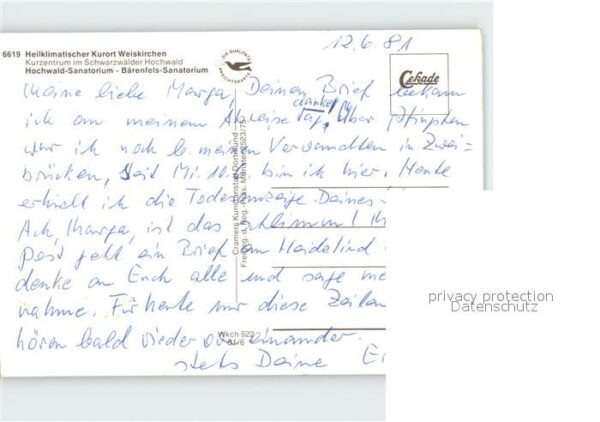 6619 Heilklimatischer Kurort Weiskirchen
Kurzentrum im Schwarzwälder Hochwald
Hochwald-Sanatorium - Bärenfels-Sanatorium
DIE QUALITÄTS ANSICHTSKARTE
12.6.81
Cekade
Meine liebe Marga, Deinen Brief bekam
ich an meinem Abreise Tag, danke! Über Pfingsten
war ich noch b. meinen Verwandten in Zwei=
brücken, seit Mi. 10.6. bin ich hier. Heute
erhielt ich die Todesanzeige Deines
Ach, Marga, ist das schlimm! Ih
Post geht ein Brief an Heidelind
denke an Euch alle und sage me
nahme. Für heute nur diese Zeilen
hören bald wieder voneinander.
stets Deine
Cramers Kunstanstalt Dortmund
Freigeg. d. Reg.-Präs. Münster 6523/75
Wkch 522
81/6
privacy protection
Datenschutz